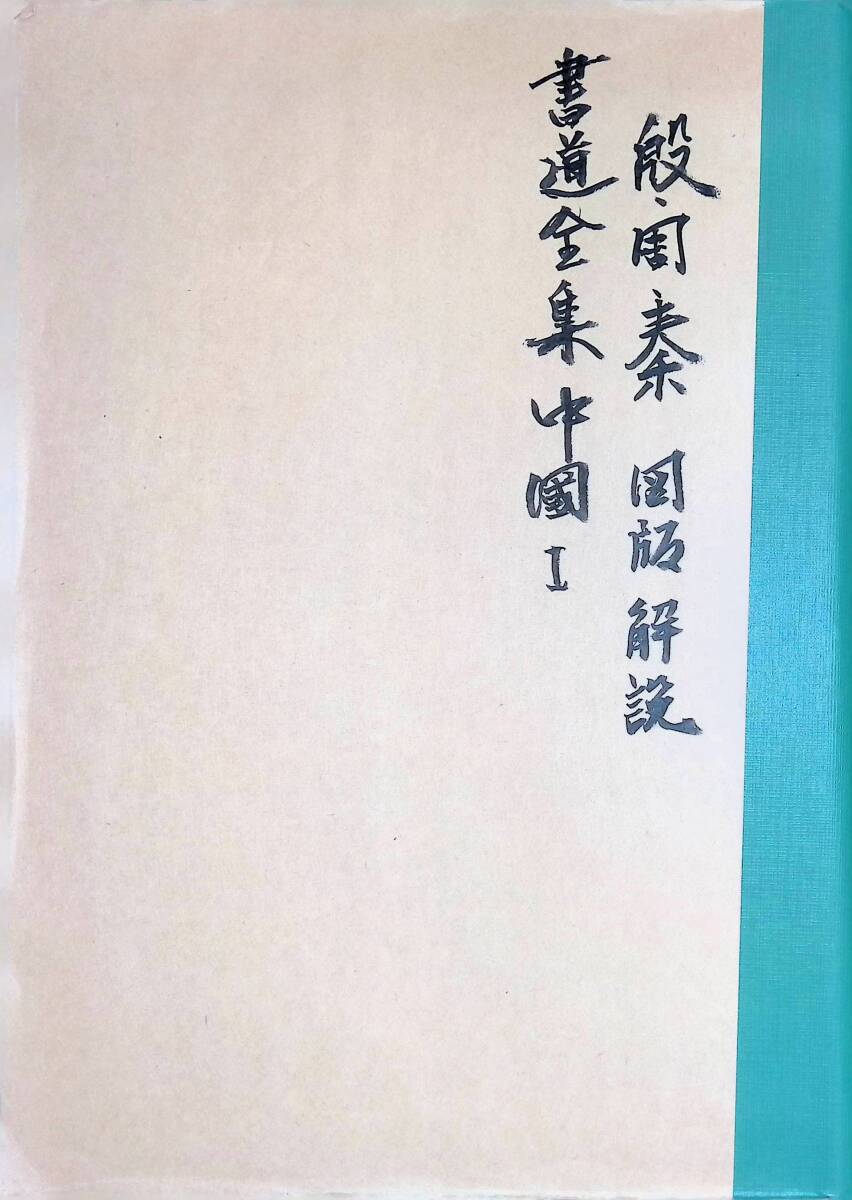 殷、周、秦 図版解説
書道全集 中國 I